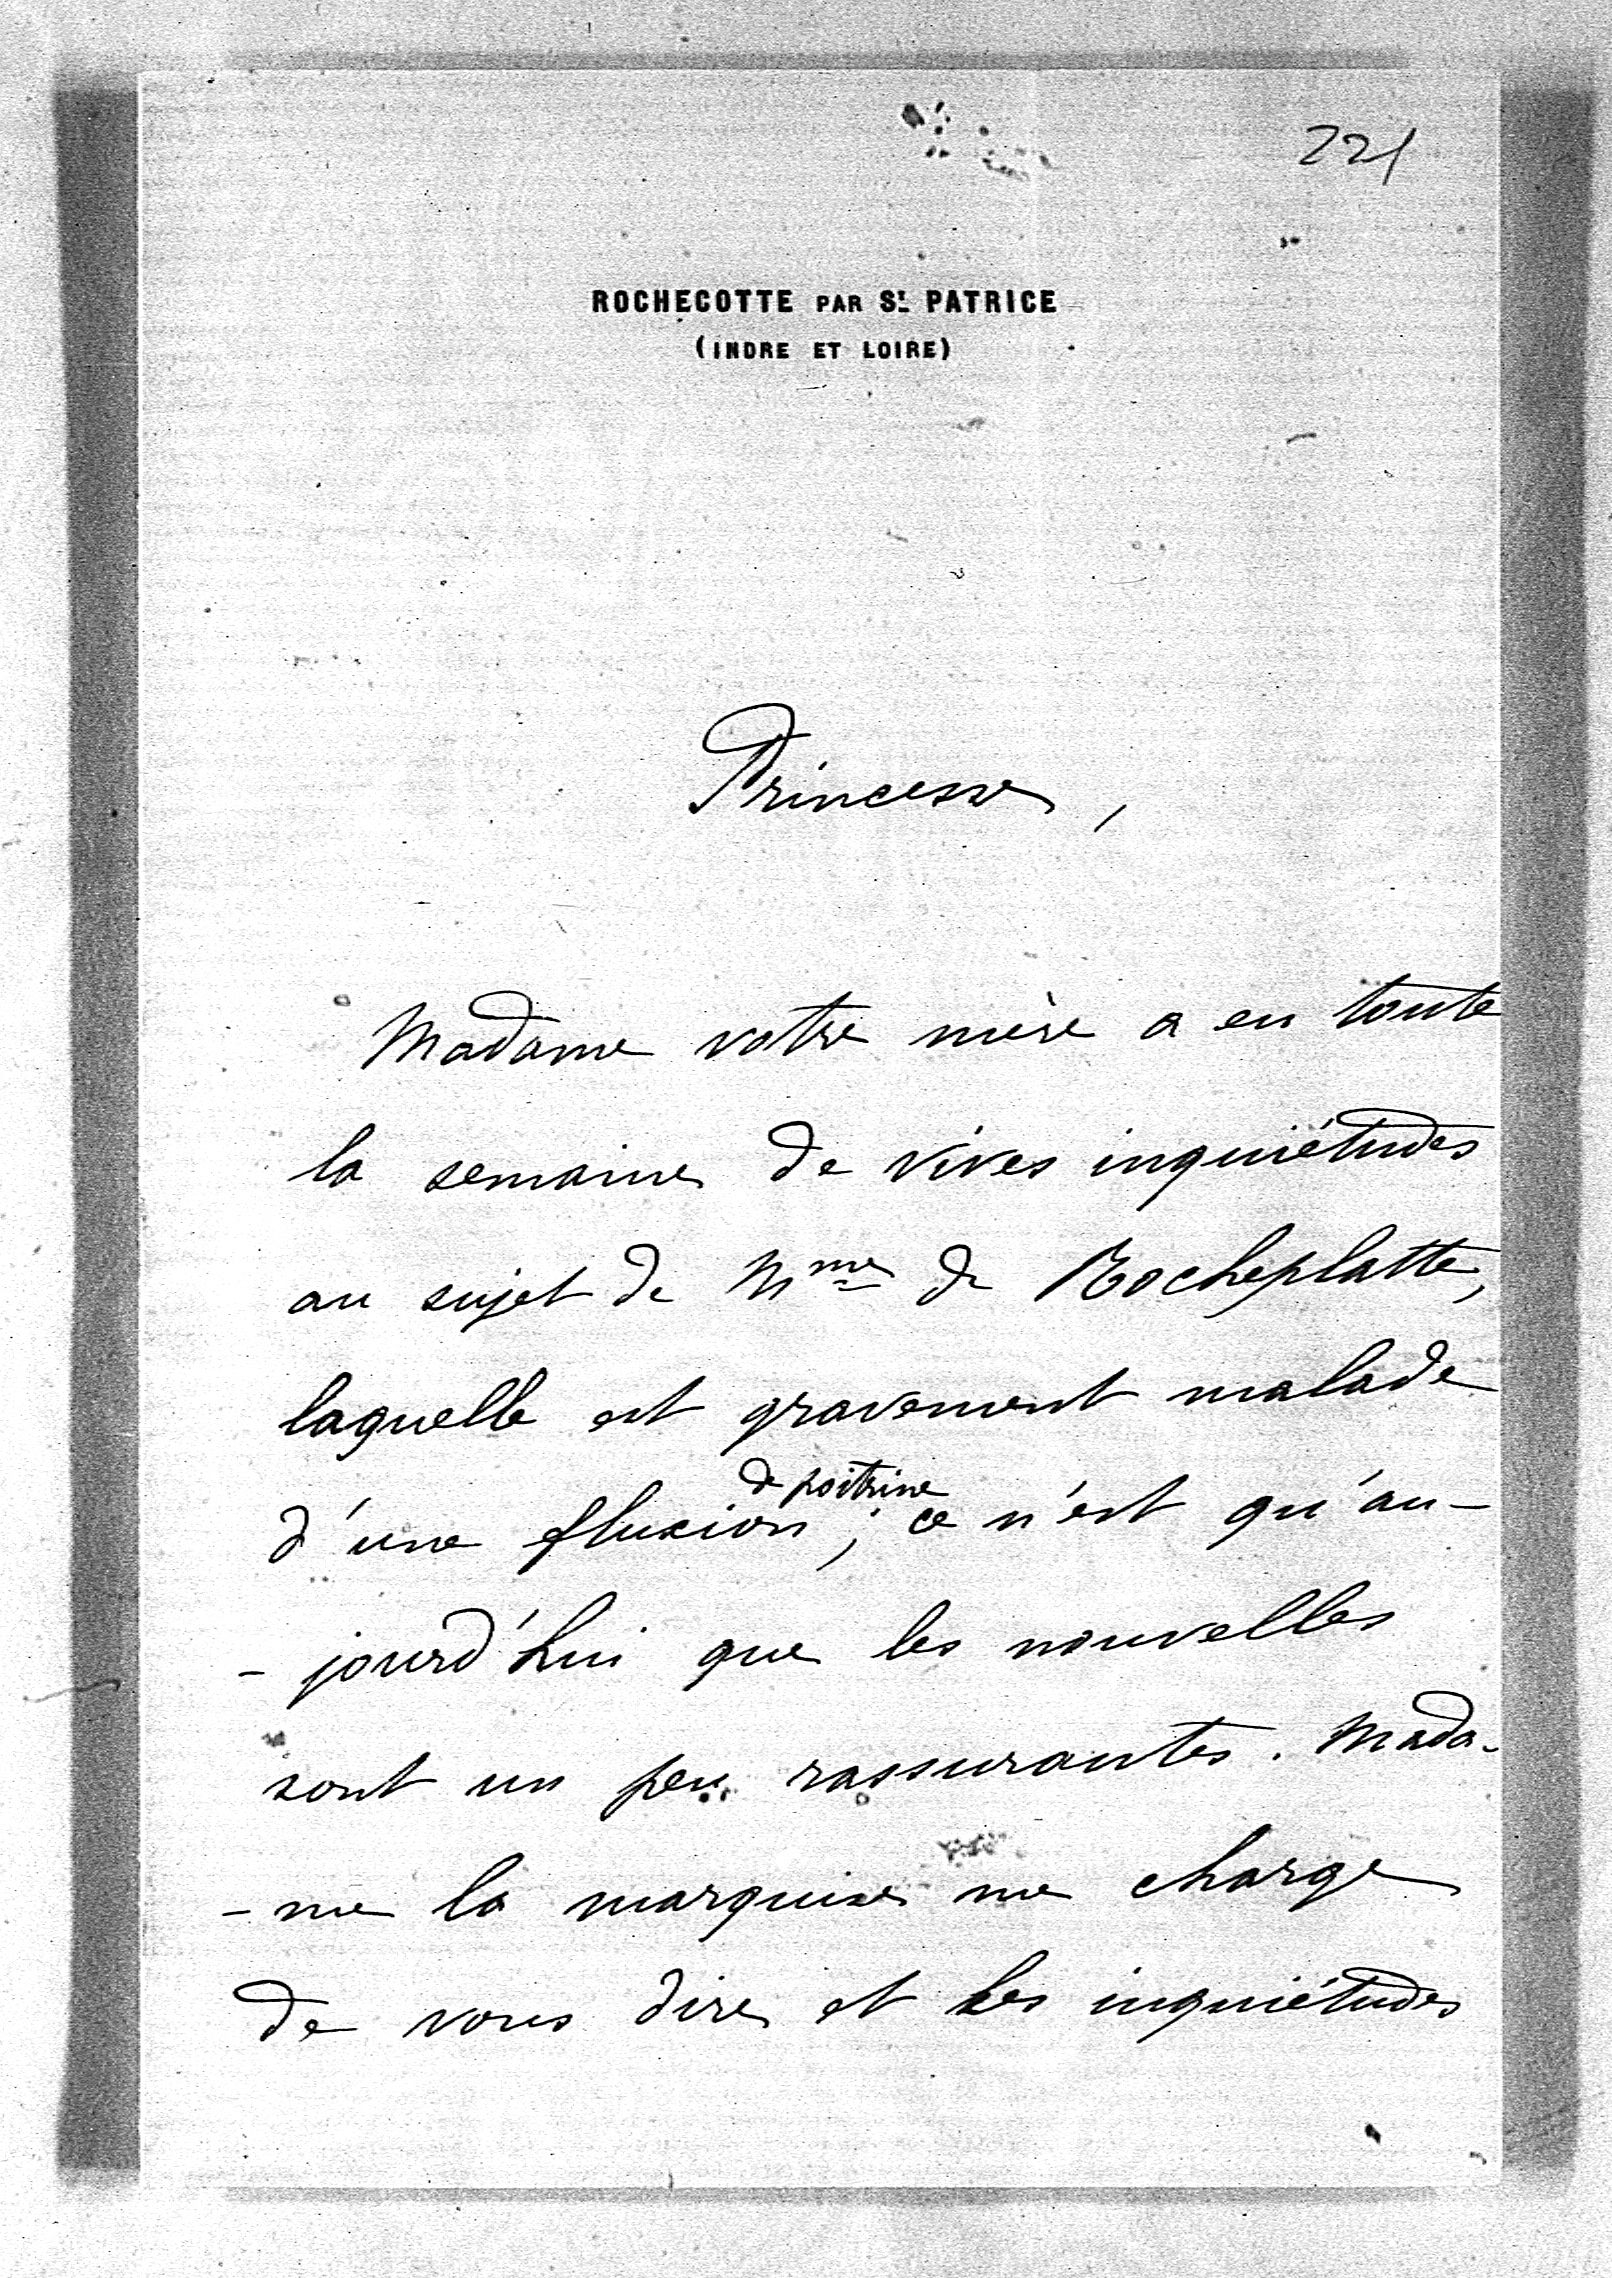 221
ROCHECOTTE PAR St. PATRICE
(INDRE ET LOIRE)
Princesse,
Madame votre mère a eu toute
la semaine de vives inquiétudes
au sujet de Mme de Rocheplatte,
laquelle est gravement malade
de poitrine
d'une fluxion ; ce n'est qu'au-
- jourd'hui que les nouvelles
sont un peu rassurantes. Mada-
- me la marquise me charge
de vous dire et les inquiétudes